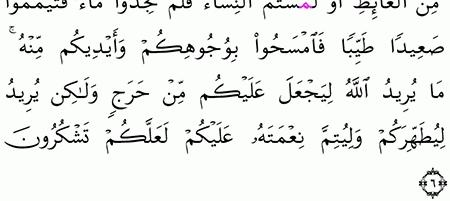 مِّنَ ٱلْغَآئِطِ أَوْ لَٰمَسْتُمُ ٱلنِّسَآءَ فَلَمْ تَجِدُوا۟ مَآءً فَتَيَمَّمُوا۟
صَعِيدًا طَيِّبًا فَٱمْسَحُوا۟ بِوُجُوهِكُمْ وَأَيْدِيكُم مِّنْهُ ۚ
مَا يُرِيدُ ٱللَّهُ لِيَجْعَلَ عَلَيْكُم مِّنْ حَرَجٍ وَلَٰكِن يُرِيدُ
لِيُطَهِّرَكُمْ وَلِيُتِمَّ نِعْمَتَهُۥ عَلَيْكُمْ لَعَلَّكُمْ تَشْكُرُونَ
٦